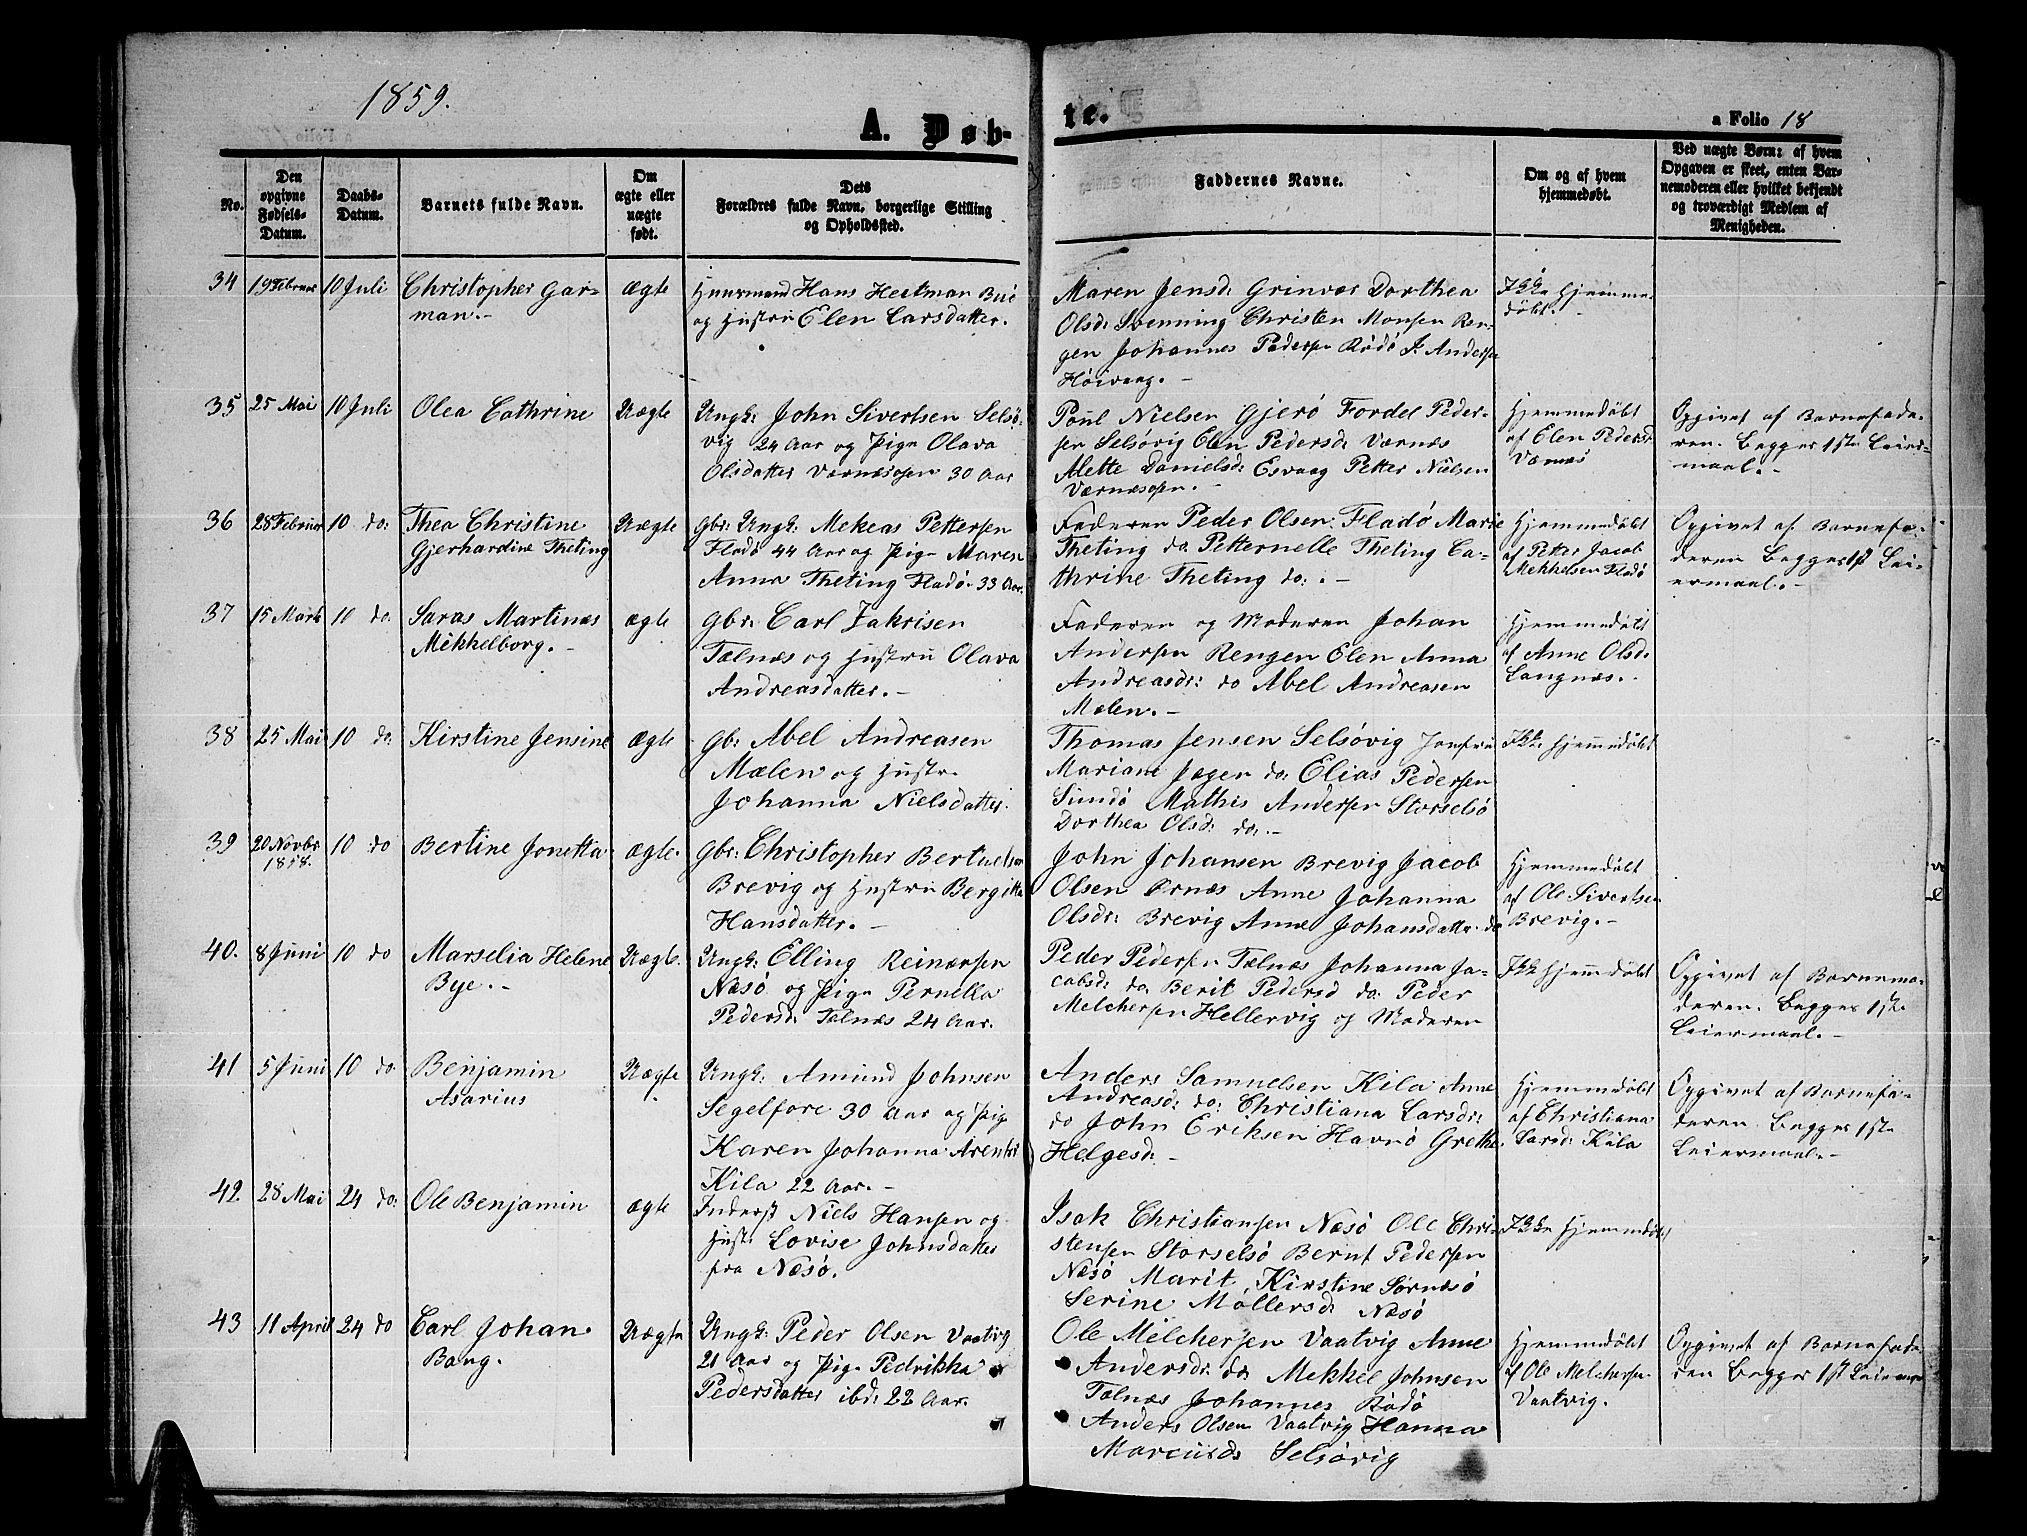 1859.
A. Døb-
te.
a Folio 18
No.
Den
opgivne
Fødsels-
Datum.
Daabs-
Datum.
Barnets fulde Navn.
Om
ægte eller
uægte
født.
Dets
Forældres fulde Navn, borgerlige Stilling
og Opholdssted.
Faddernes Navne.
Om og af hvem
hjemmedøbt.
Ved uægte Børn: af hvem
Opgaven er skeet, enten Bar-
nemoderen eller hvilket bekjendt
og troværdigt Medlem af
Menigheden.
34
19 Februar
10 Juli
Christopher Gar-
man.-
ægte
Huusmand Hans Hertman Bue
og Hustru Elen Larsdatter.
Maren Jensd: Grinvær Dorthea
Olsd: Svenning Christen Monsen Ren-
gen Johannes Pedersen Rødø J. Andersen
Høivaag.-
Ikke hjemme-
døbt.-
35
25 Mai
10 Juli
Olea Cathrine
Uægte
Ungk: John Sivertsen Selsø-
vig 24 Aar og Pige Olava
Olsdatter Værnæsosen 30 Aar
Poul Nielsen Gjerø Fordel Peder-
sen Selsøvig Elen Pedersd: Værnæs
Mette Danielsd: Esvaag Petter Nielsen
Værnæsosen.-
Hjemmedøbt
af Elen Pedersd:
Værnæs
Opgivet af Barnefade-
ren. Begges 1ste Leier-
maal.-
36
28 Februar
10 do:
Thea Christine
Gjerhardine Theting
Uægte
Gbr: Ungk: Mekeas Pettersen
Fladø 44 Aar og Pige Maren
Anna Theting Fladø 33 Aar.
Faderen Peder Olsen Fladø Marie
Theting do: Petternelle Theting Ca-
thrine Theting do:.-
Hjemmedøbt
af Petter Jacob
Mekkelsen Fladø
Opgivet af Barnefa-
deren Begges 1st Lei-
ermaal.-
37
15 Marts
10 do:
Saras Martinæs
Mikkelborg.-
ægte
Gbr: Carl Zakrisen
Tælnæs og Hustru Olava
Andreasdatter.-
Faderen og Moderen Johan
Andersen Rengen Elen Anna
Andreasdr: do Abel Andreasen
Mælen.-
Hjemmedøbt
af Anne Olsd:
Langnæs.-
38
25 Mai
10 do:
Kirstine Jensine
ægte
Gb: Abel Andreasen
Mælen og Hustr.
Johanna Nielsdatter.
Thomas Jensen Selsøvig Jomfru
Mariane Jæger do: Elias Pedersen
Sundø Mathis Andersen Storselsø
Dorthea Olsd: do:-
Ikke Hjemmedøbt
39
20 Novbr
1858.
10 do
Bertine Jonetta
ægte.
Gbr: Christopher Bertuelsen
Brevig og Hustru Bergitta
Hansdatter.-
John Johansen Brevig Jacob
Olsen Ørnæs Anne Johanna
Olsdr: Brevig Anne Johansdatter do
Hjemmedøbt
af Ole Sivertsen
Brevig.-
40.
8 Juni
10 do
Marselia Helene
Bye.-
Uægte.
Ungk: Elling Reinersen
Næsø og Pige Pernella
Pedersd: Tælnæs 24 Aar.
Peder Pedersen Tælnæs Johanna Ja-
cobsd: do: Berit Pedersd do: Peder
Melchersen Hellervig og Moderen
Ikke Hjemmdøbt
Opgivet af Barnemo-
deren. Begges 1ste
Leiermaal.-
41
5 Juni
10 do
Benjamin
Asarius
Uægte
Ungk: Amund Johnsen
Segelfore 30 Aar og Pige
Karen Johanna Arentsd
Kila 22 Aar.-
Anders Samuelsen Kila Anne
Andreasd: do: Christiana Larsdr:
do John Eriksen Havnø Grethe
Helgesd:-
Hjemmedøbt
af Christiana
Larsd: Kila
Opgivet af Barnefa-
deren. Begges 1ste
Leiermaal.-
42.
28 Mai
24 do:
Ole Benjamin
ægte
Inderst Niels Hansen og
Hust: Lovise Johnsdatter
fra Næsø.
Isak Christiansen Næsø Ole Chri-
stensen Storselsø Bernt Pedersen
Næsø Marit Kirstine Sørnæsø
Serine Møllersd: Næsø
Ikke Hjemmedøbt
43
11 April
24 do
Carl Johan
Bang.
Uægte
Ungk: Peder Olsen Vaatvig
21 Aar og Pige Pedrikka
Pedersdatter ibd: 22 Aar.
Ole Melchersen Vaatvig Anne
Andersdr: do Mekkel Johnsen
Tælnæs Johannes Rødø
Anders Olsen Vaatvig Hanna
Marcusds Selsøvig
Hjemmedøbt
af Ole Melchersen
Vaatvig.
Opgivet af Barnefade-
ren Begges 1st Leiermaal